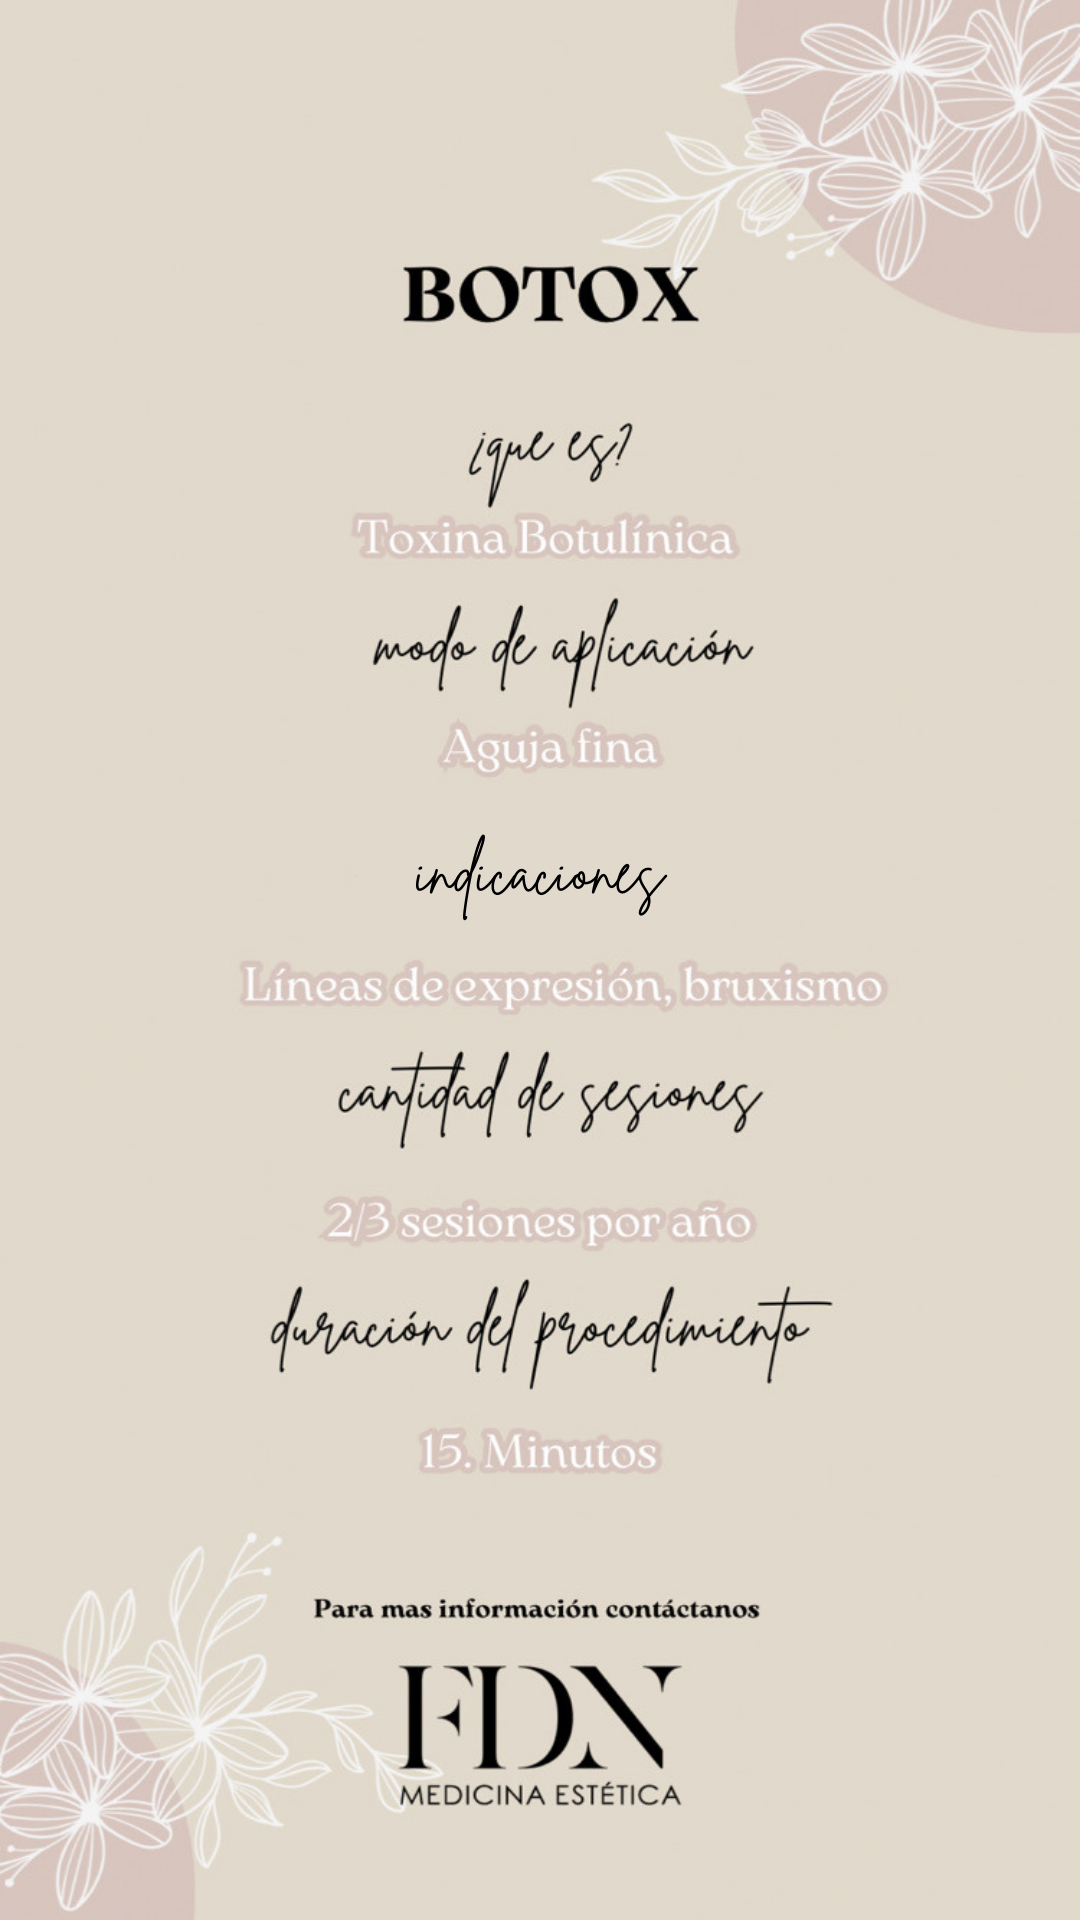 BOTOX
¿que es?
Toxina Botulínica
modo de aplicación
Aguja fina
indicaciones
Líneas de expresión, bruxismo
cantidad de sesiones
2/3 sesiones por año
duración del procedimiento
15. Minutos
Para mas información contáctanos
FDN
MEDICINA ESTÉTICA